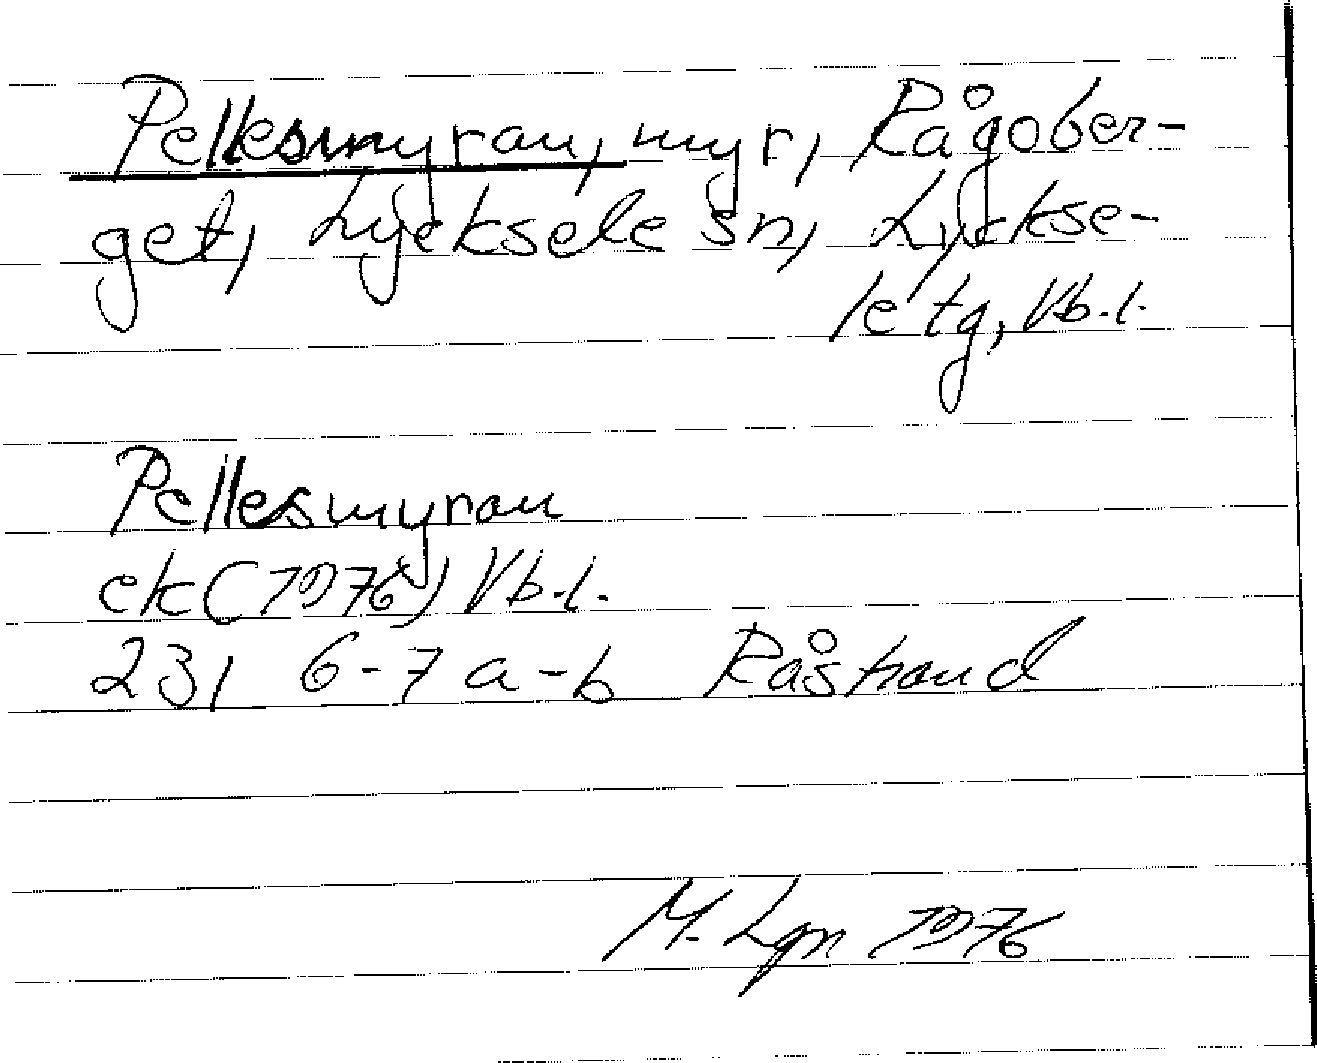 Pellesmyran, myr, Rågober-
get, Lycksele sn, Lyckse-
le tg, Vb.l.
Pellesmyran
ek (1976) Vb.l.
23I 6-7 a-b Råstrand
M. Lgn 1976